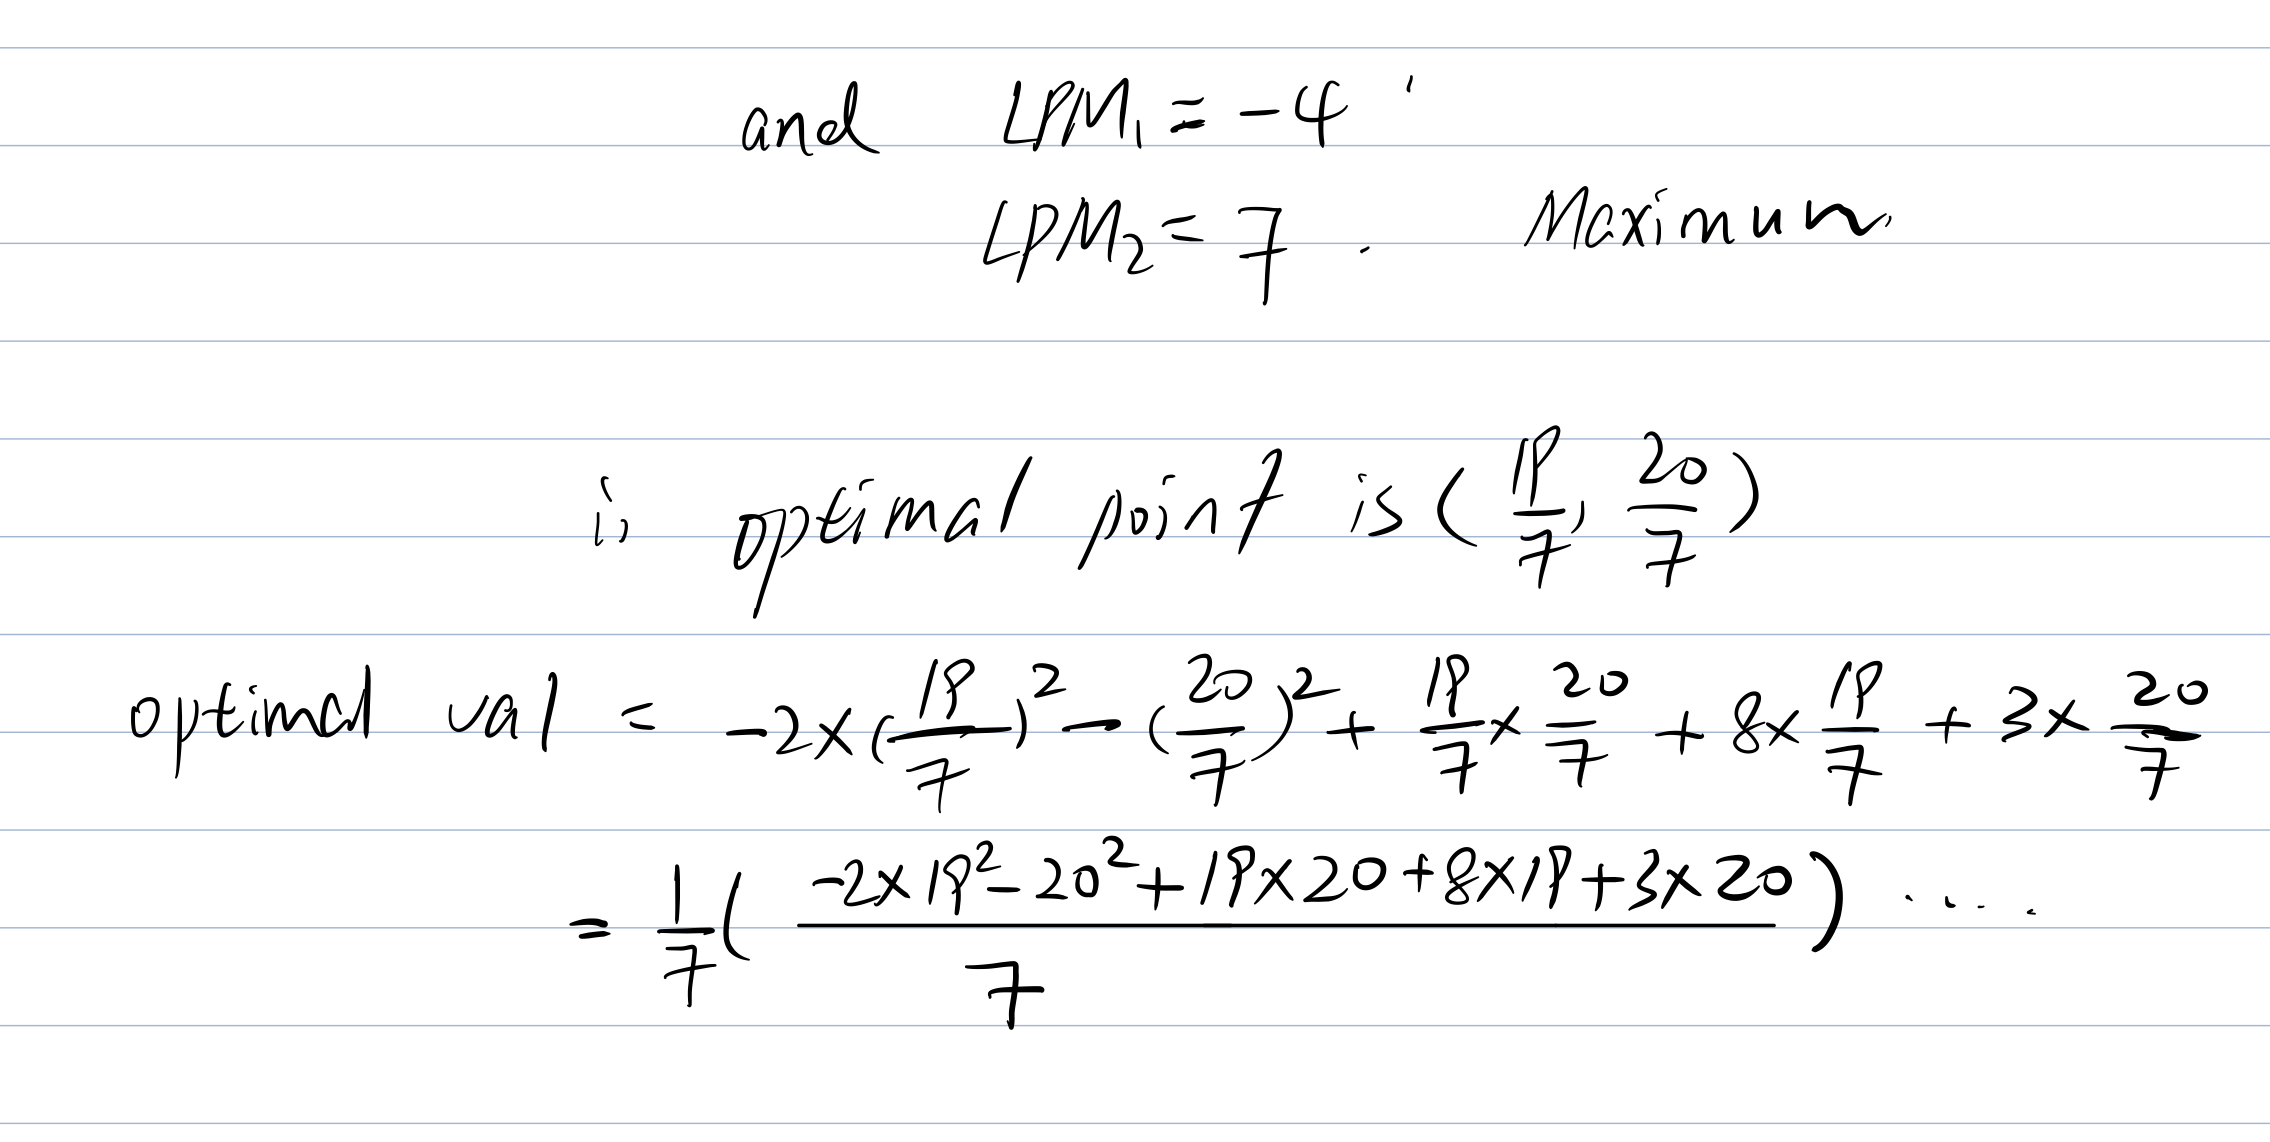 and LPM₁ = -4 '
LPM₂ = 7 . Maximum
is optimal point is (19/7, 20/7)
optimal val = -2×(19/7)² - (20/7)² + 19/7 × 20/7 + 8× 19/7 + 3× 20/7
= 1/7 ( (-2×19² - 20² + 19×20 + 8×19 + 3×20) / 7 ) ....